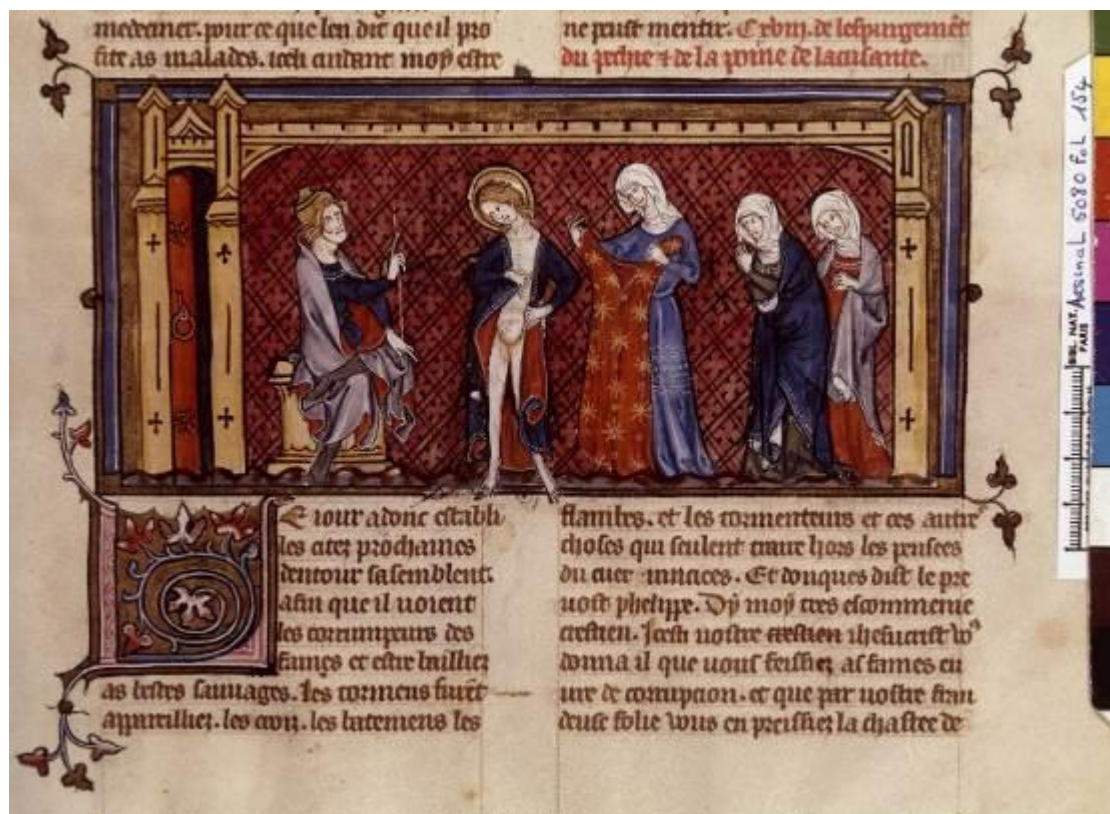 medecaner. pour ce que len dit que il pro
fite as malades. icest cuidant moy estre
E iour adonc establi
les citez prochaines
dentour sasemblent.
afin que il voient
les corrumpeurs des
fames et estre bailliez
as bestes sauvages. les tormens furent
appareilliez. les croiz. les batemens les
ne peust mentir. C xviij. de lespurgement
du pechie et de la peine de lacusante.
flambes. et les tormenteurs et ces autres
choses qui seulent traire hors les pensees
du cuer. Et donques dist le pre
uost phelippe. Dy moy tres escommenie
crestien. vostre crestien ihesucrist vous
donna il que vous feissiez as fames eu
ure de corrupcion. et que par vostre frau
deuse folie vous en preissiez la chastee de
BIBL. NAT. PARIS
Arsenal 5080 Fol 154